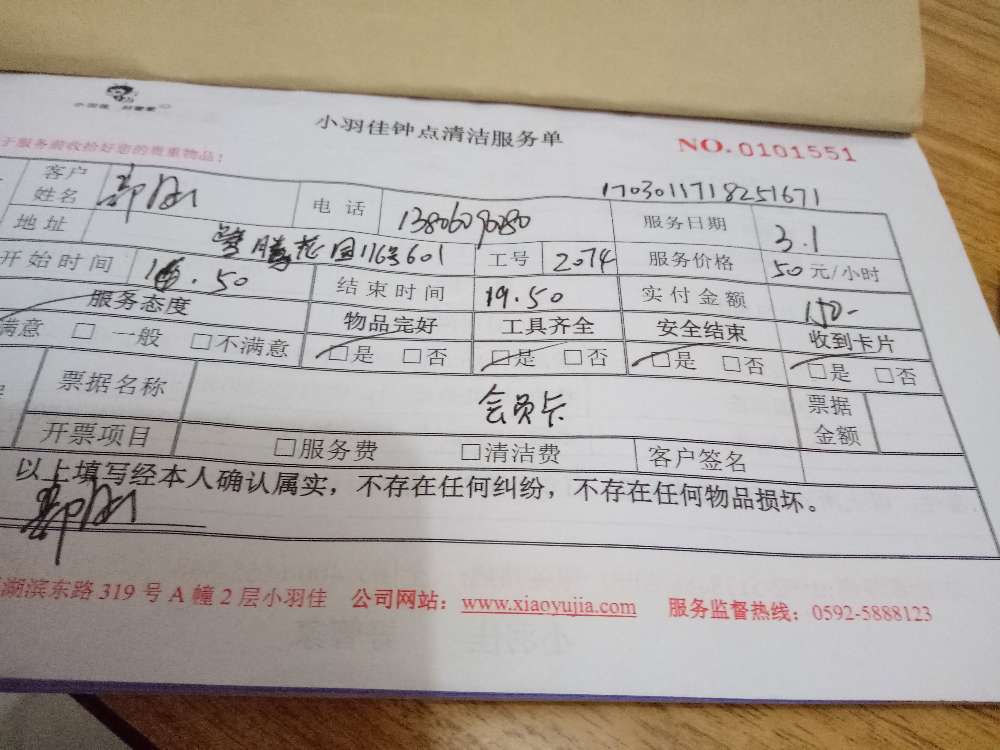 小羽佳钟点清洁服务单
NO. 0101551
于服务前收拾好您的贵重物品！
1703011718251671
客户姓名 电话 13806090280 服务日期 3.1
地址 腾花园116号601 工号 2074 服务价格 50元/小时
开始时间 16.50 结束时间 19.50 实付金额 150-
服务态度 物品完好 工具齐全 安全结束 收到卡片
满意 □ 一般 □不满意 □是 □否 □是 □否 □是 □否 □是 □否
票据名称 会员卡 票据金额
开票项目 □服务费 □清洁费 客户签名
以上填写经本人确认属实，不存在任何纠纷，不存在任何物品损坏。
湖滨东路319号A幢2层小羽佳 公司网站：www.xiaoyujia.com 服务监督热线：0592-5888123